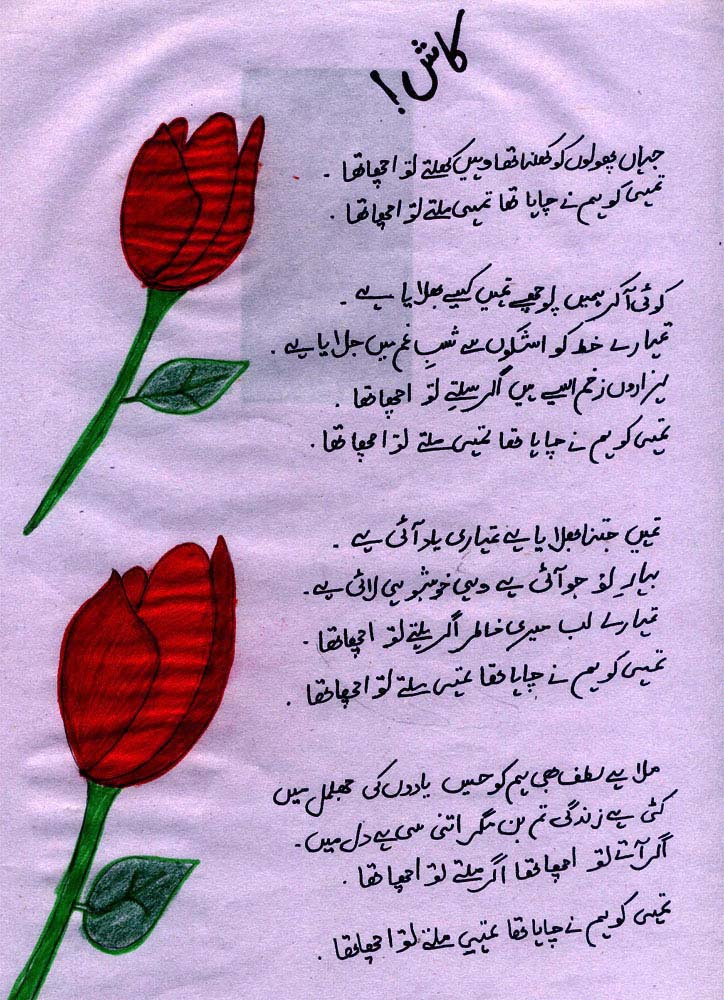 کاش!
جہاں پھولوں کو کھلنا تھا وہیں کھلتے تو اچھا تھا ۔
تمہی کو ہم نے چاہا تھا تمہی ملتے تو اچھا تھا ۔
کوئی آکر ہمیں پوچھے تمہیں کیسے بھلایا ہے ۔
تمہارے خط کو اشکوں سے شبِ غم میں جلایا ہے ۔
ہزاروں زخم ایسے ہیں اگر سلتے تو اچھا تھا ۔
تمہی کو ہم نے چاہا تھا تمہی ملتے تو اچھا تھا ۔
تمہیں جتنا بھلایا ہے تمہاری یاد آئی ہے ۔
بہارِ نو جو آئی ہے وہی خوشبو ہی لائی ہے ۔
تمہارے لب میری خاطر اگر ہلتے تو اچھا تھا ۔
تمہی کو ہم نے چاہا تھا تمہی ملتے تو اچھا تھا ۔
ملا ہے لطف بھی ہم کو حسیں یادوں کی جھلمل میں
کٹی ہے زندگی تم بن مگر اتنی سی ہے دل میں ۔
اگر آتے تو اچھا تھا اگر ملتے تو اچھا تھا ۔
تمہی کو ہم نے چاہا تھا تمہی ملتے تو اچھا تھا ۔